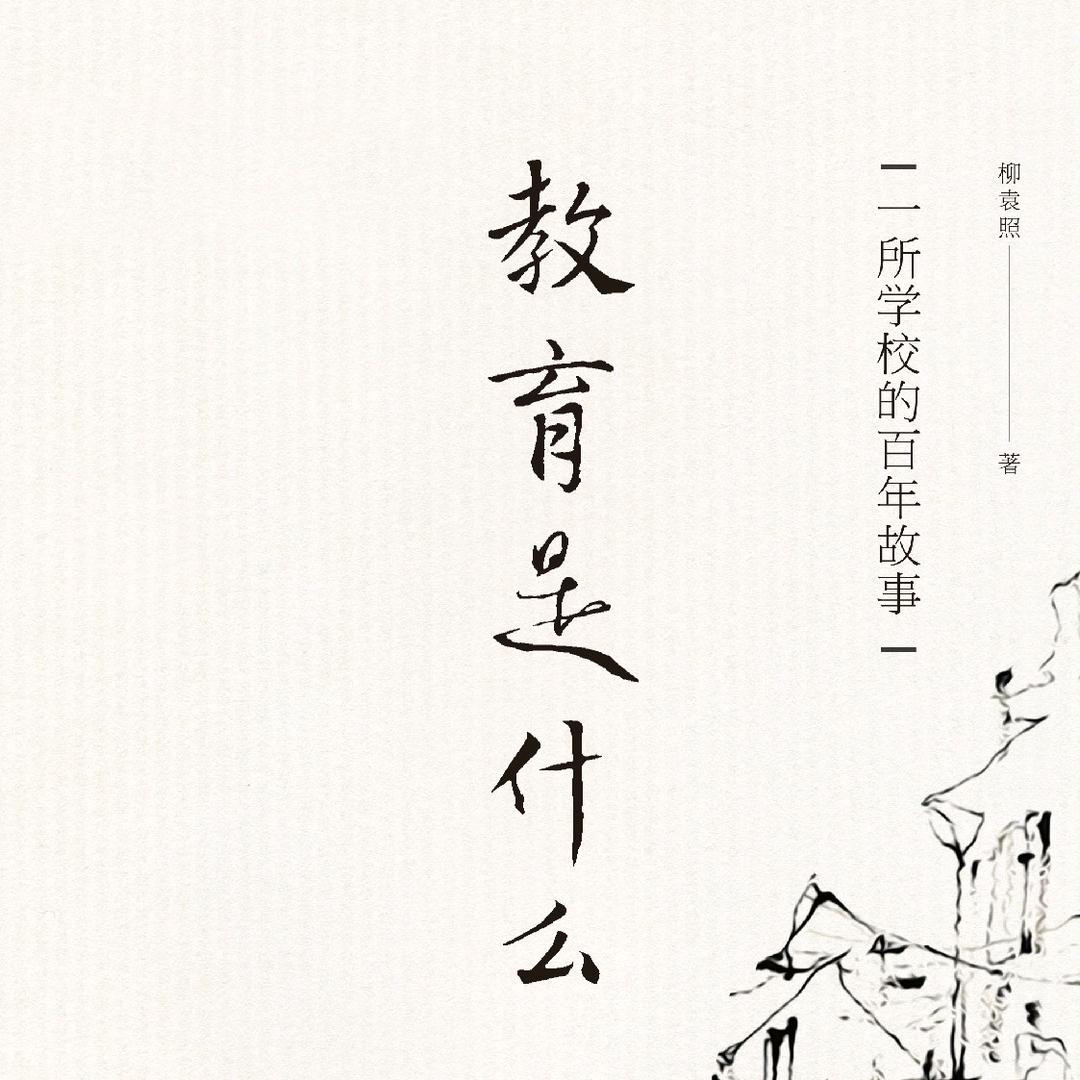 柳袁照 著
一所学校的百年故事
教育是什么